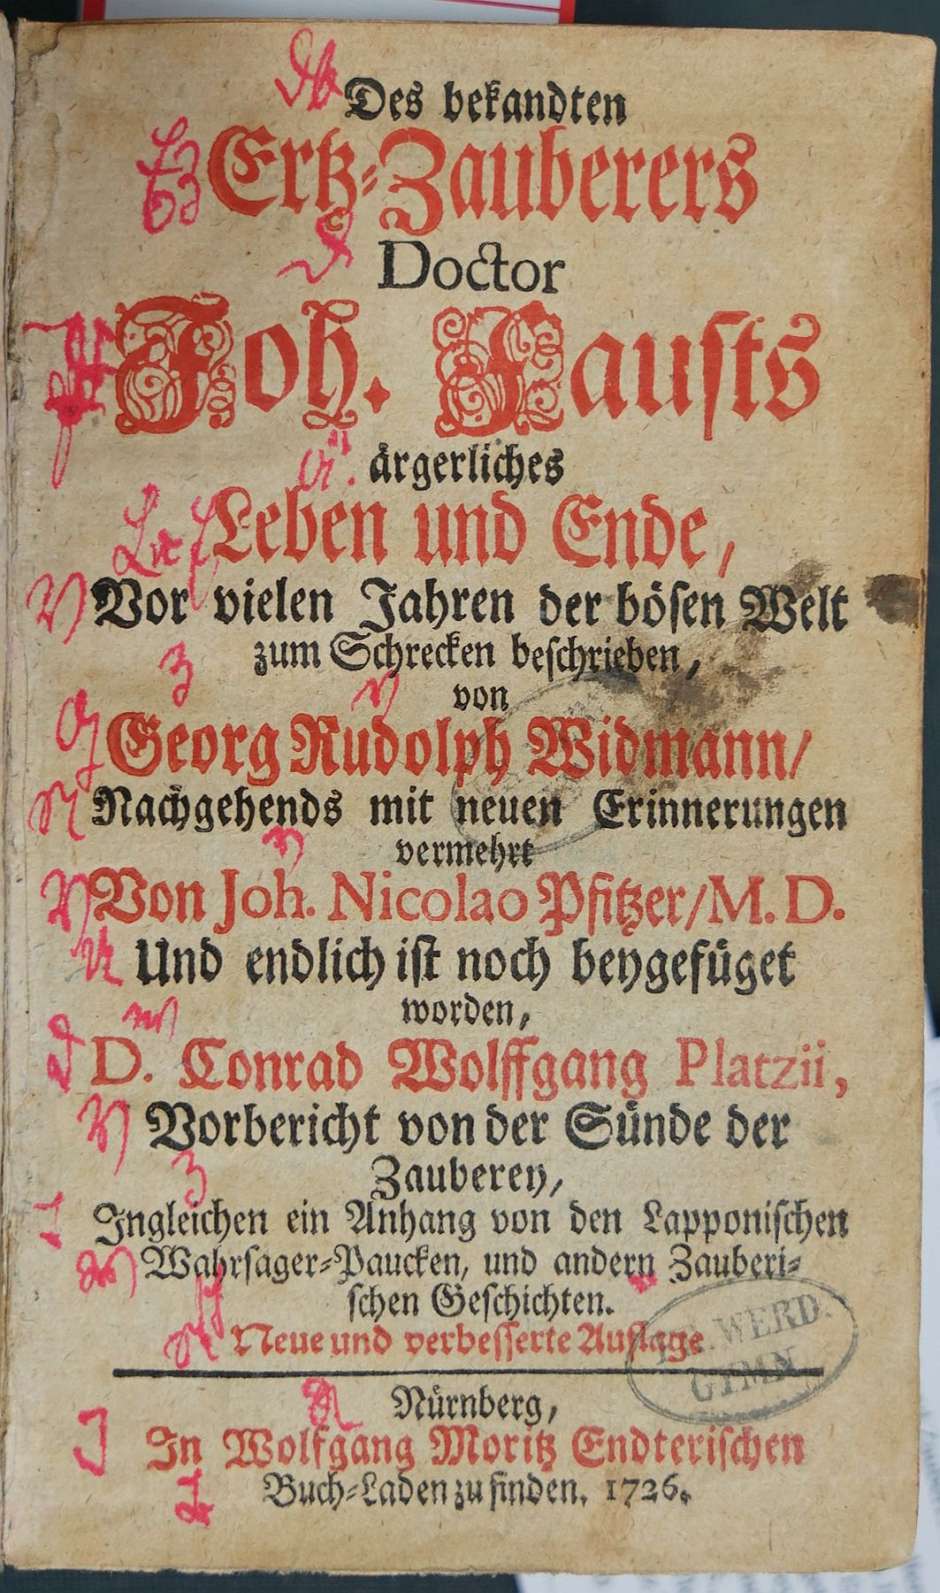 Des bekandten
Ertz-Zauberers
Doctor
Joh. Fausts
ärgerliches
Leben und Ende,
Vor vielen Jahren der bösen Welt
zum Schrecken beschrieben,
von
Georg Rudolph Widmann/
Nachgehends mit neuen Erinnerungen
vermehrt
Von Joh. Nicolao Pfitzer/M. D.
Und endlich ist noch beygefüget
worden,
D. Conrad Wolffgang Platzii,
Vorbericht von der Sünde der
Zauberey,
Ingleichen ein Anhang von den Lapponischen
Wahrsager-Paucken, und andern Zauberi-
schen Geschichten.
Neue und verbesserte Auflage.
WERD.
GYMN
Nürnberg,
In Wolfgang Moritz Endterischen
Buch-Laden zu finden. 1726.